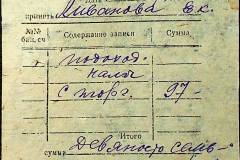 принято Ливанова Ек.
№№ бал. сч. Содержание записи Сумма
подоход.
налог
с торг. 97-
Итого
сумма Девяносто семь